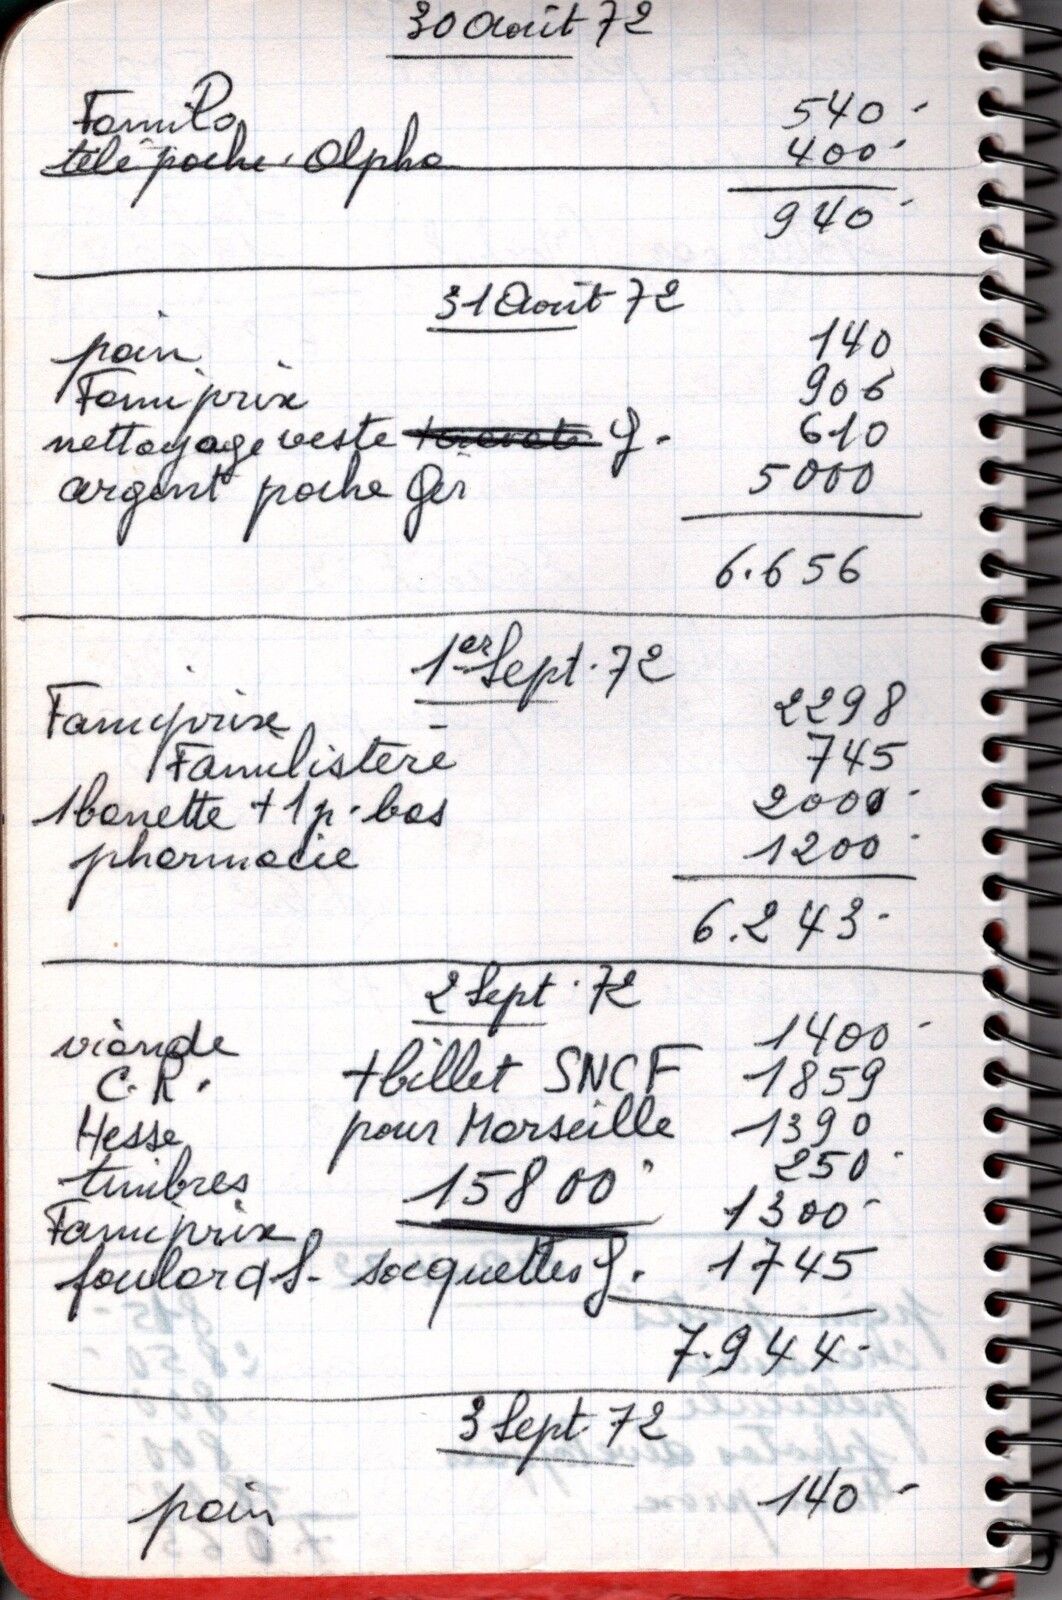 30 Août 72
Famili 540-
télé poche. Alpha 400-
940-
31 Août 72
pain 140
Famiprix 906
nettoyage veste + cravate G. 610
argent poche Gér 5000
6.656
1er Sept. 72
Famiprix 2298
Familistère 745
1 barette + 1 p. bas 2000-
pharmacie 1200-
6.243-
2 Sept. 72
viande 1400-
C.R. + billet SNCF 1859
Hesse pour Marseille 1390
timbres 15800- 250-
Famiprix 1300-
foulard S- socquettes G. 1745
7.944-
3 Sept. 72
pain 140-